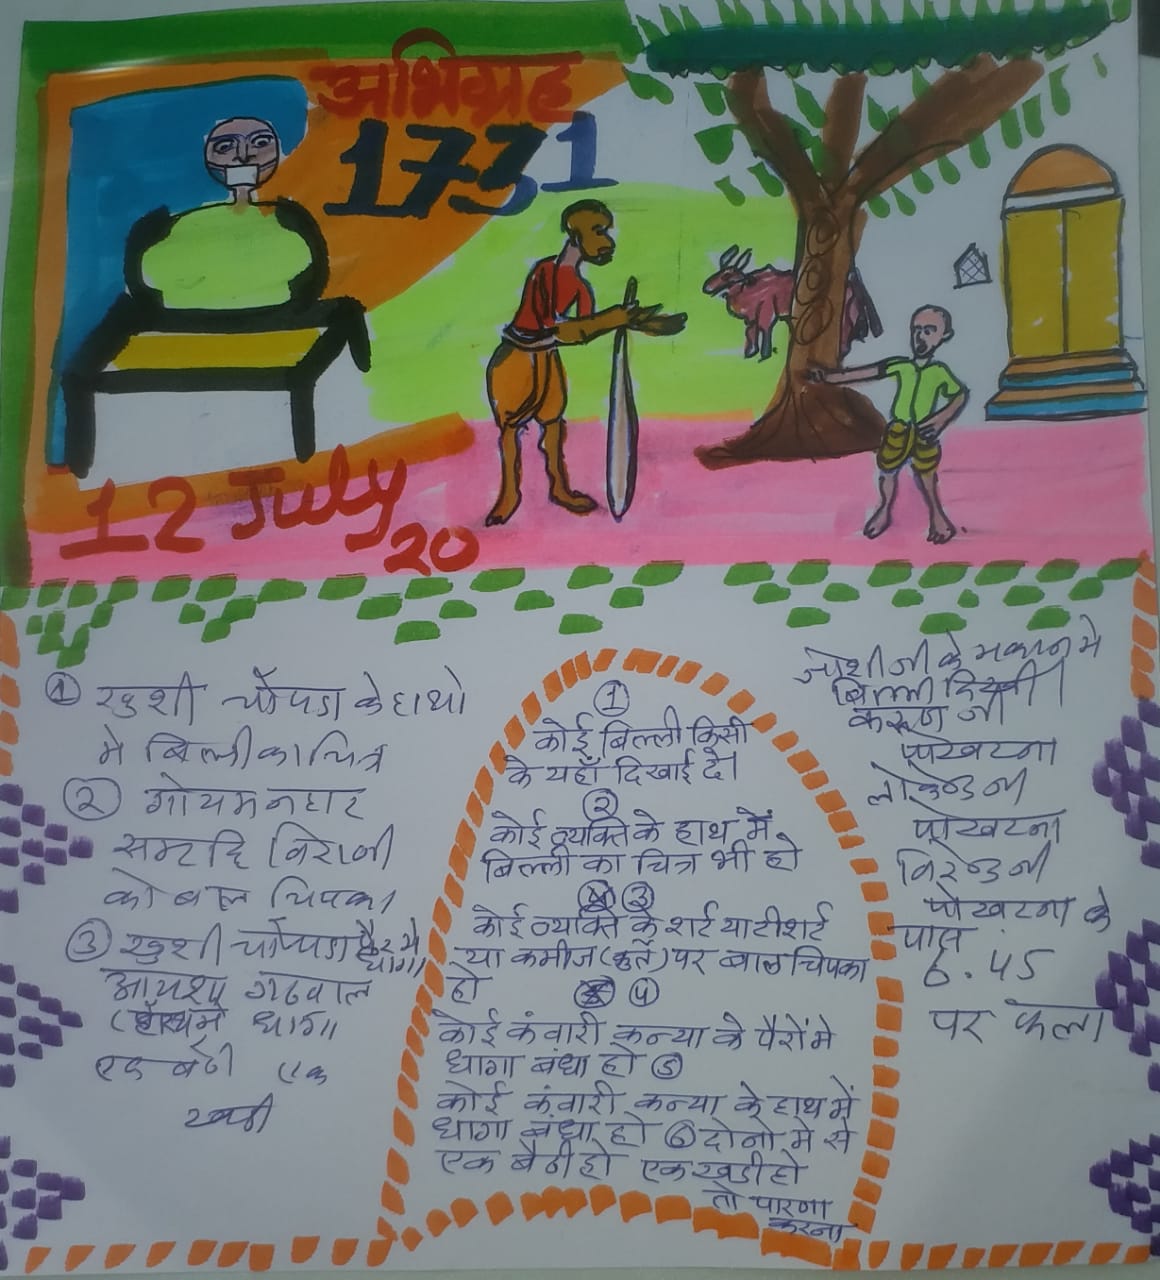 अभिग्रह
1731
12 July
20
① खुशी चौपडा के हाथो
मे बिल्ली का चित्र
② गोयम नहार
को बाल चिपका
③ खुशी चौपडा पैर मे
धागा
गढवाल
हाथमे धागा
एक बेठी एक
खडी
①
कोई बिल्ली किसी
के यहाँ दिखाई दे।
②
कोई व्यक्ति के हाथ में
बिल्ली का चित्र भी हो
③
कोई व्यक्ति के शर्ट या टीशर्ट
या कमीज (कुर्ते) पर बाल चिपका
हो
④
कोई कंवारी कन्या के पैरों मे
धागा बंधा हो ⑤
कोई कंवारी कन्या के हाथ में
धागा बंधा हो ⑥ दोनो मे से
एक बैठी हो एक खडी हो
तो पारणा
करना
जोशी जी के मकान मे
बिल्ली दिखी।
जी
पोखरना
जी
पोखरना
जी
पोखरना के
पास
6.45
पर फला